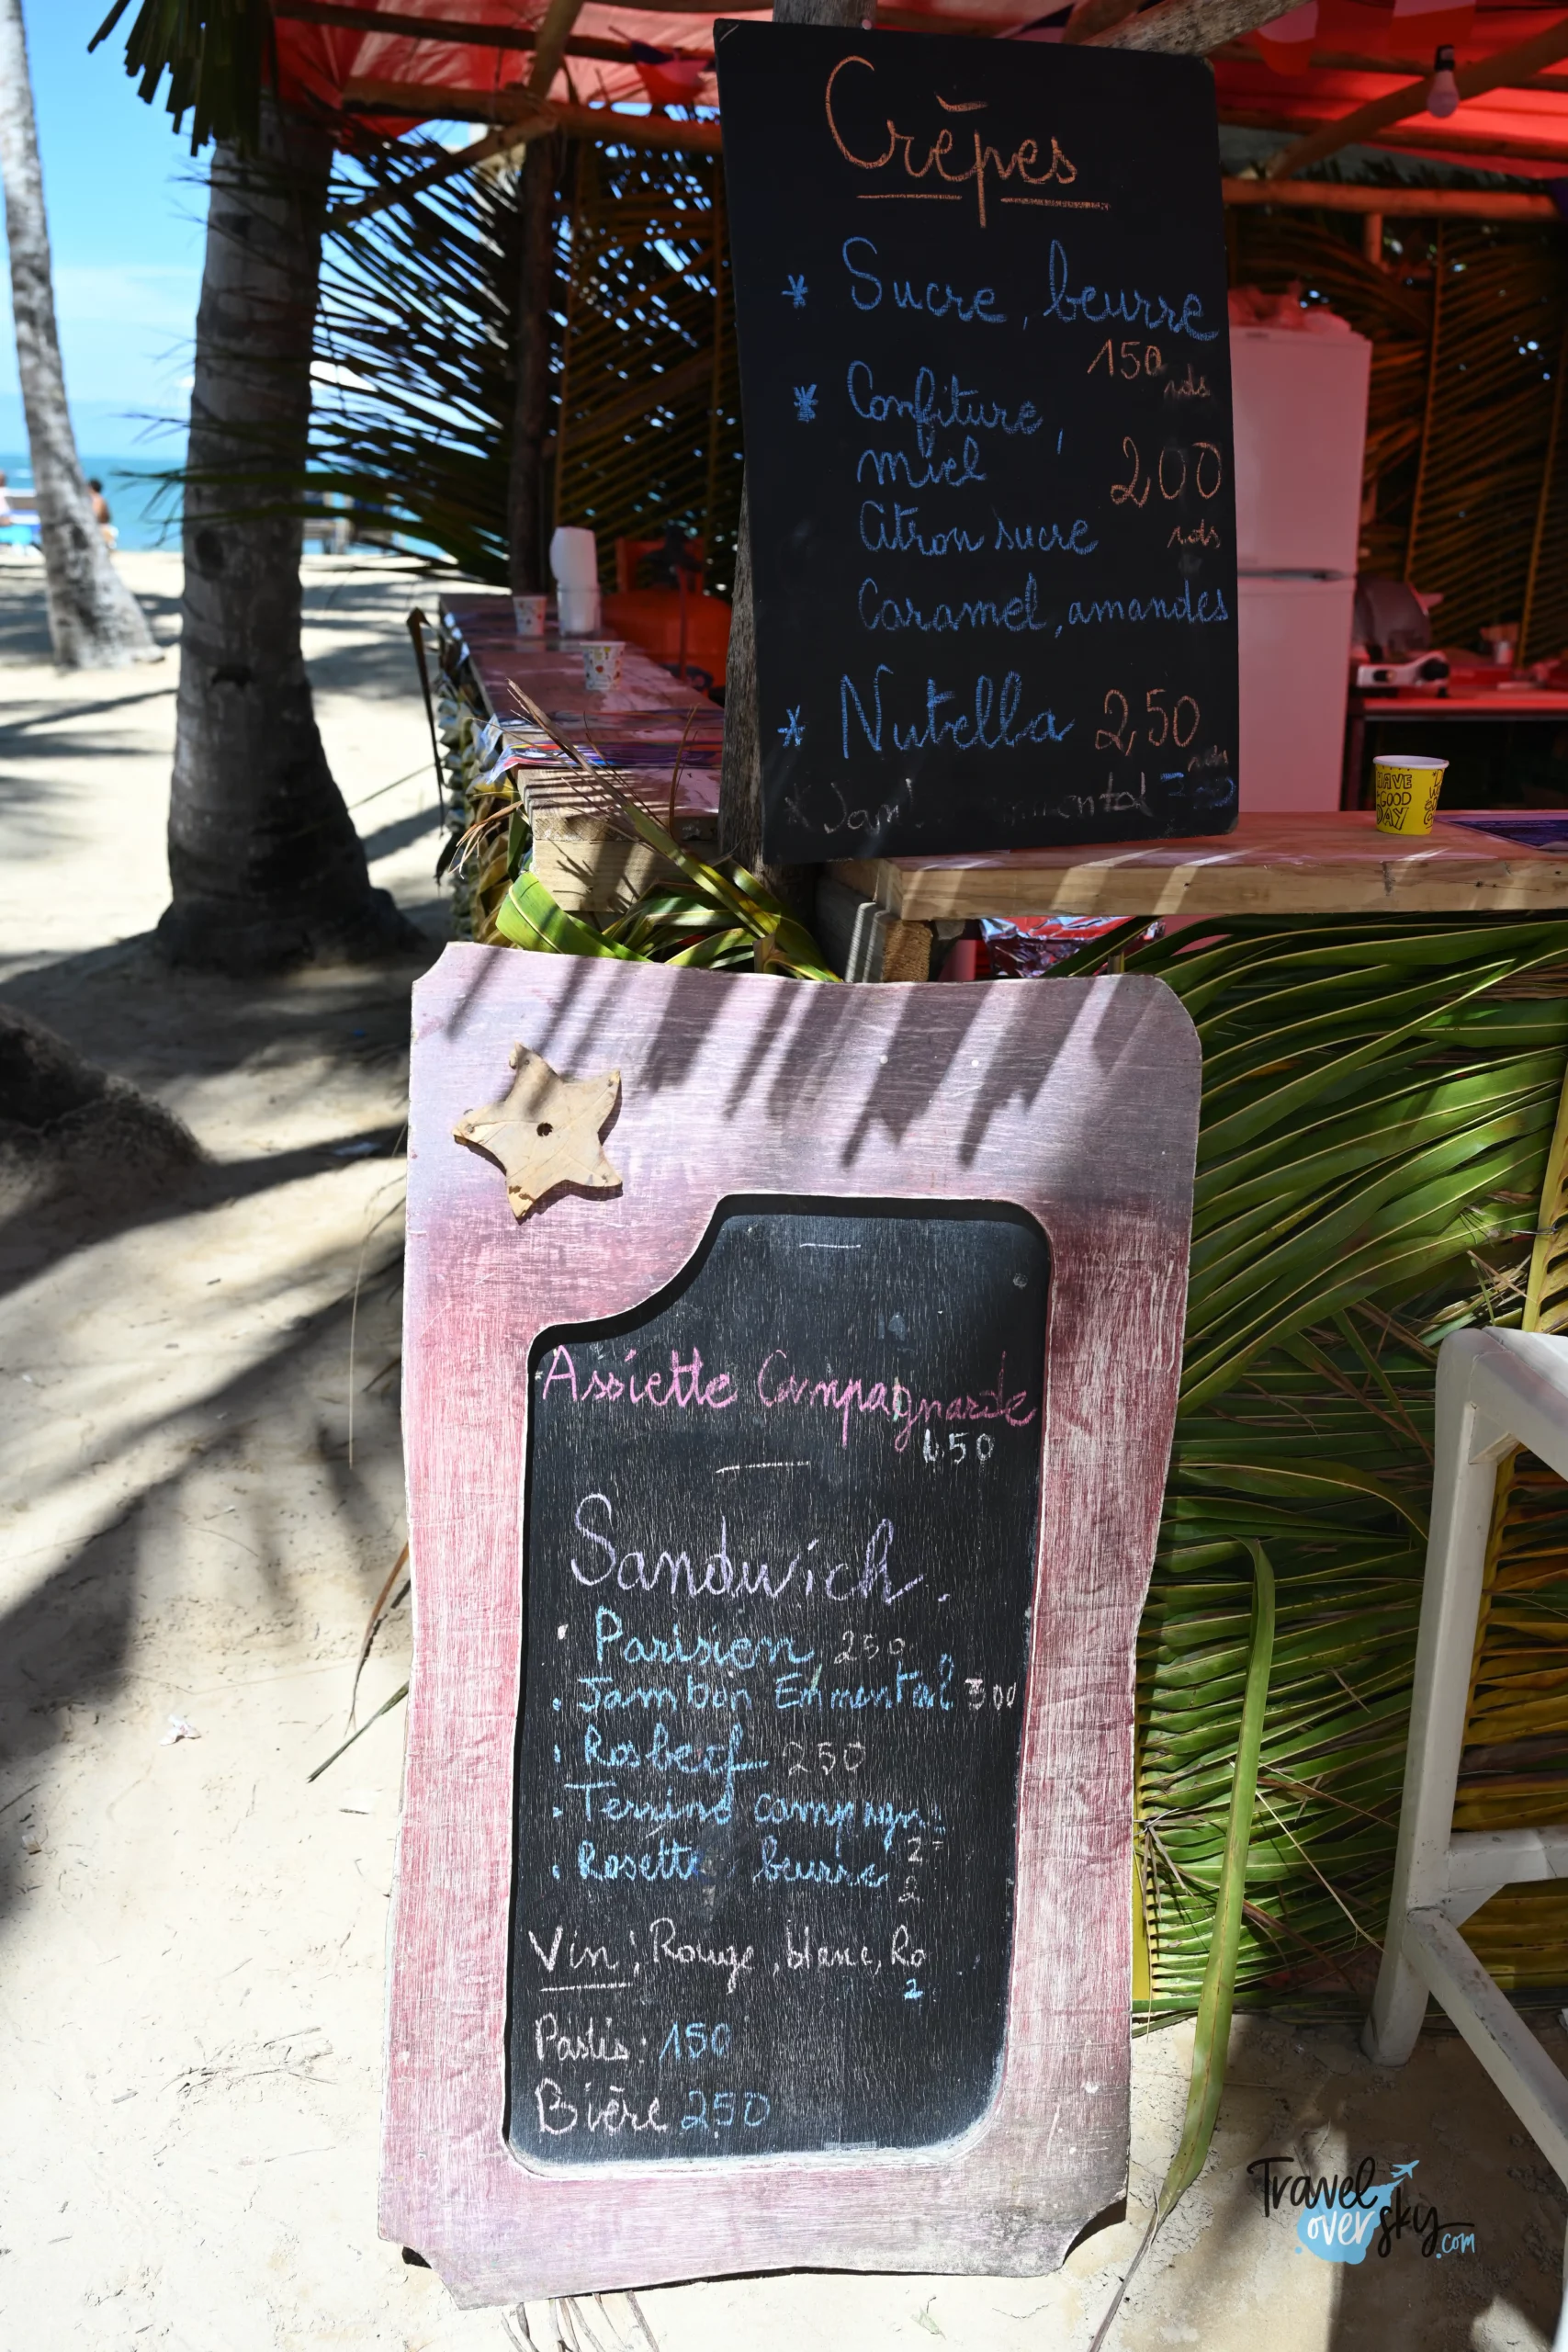 Crêpes
* Sucre, beurre
150
rds
* Confiture,
miel 200
Citron sucre rds
Caramel, amandes
* Nutella 250
HAVE
A GOOD
DAY
Assiette Campagnarde
650
Sandwich.
· Parisien 250
· Jambon Emmental 300
· Rosbeef 250
· Terrine
· Rosette beurre
Vin: Rouge, blanc,
Pastis: 150
Bière 250
Travel
over sky
.com